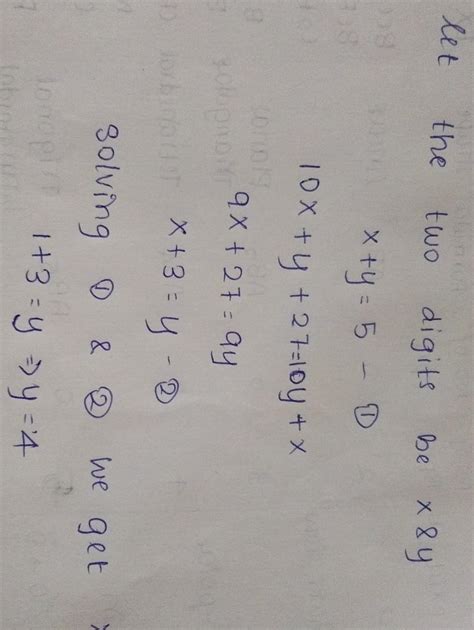 let the two digits be x & y
x + y = 5 - ①
10x + y + 27 = 10y + x
9x + 27 = 9y
x + 3 = y - ②
solving ① & ② we get x
1 + 3 = y ⇒ y = 4